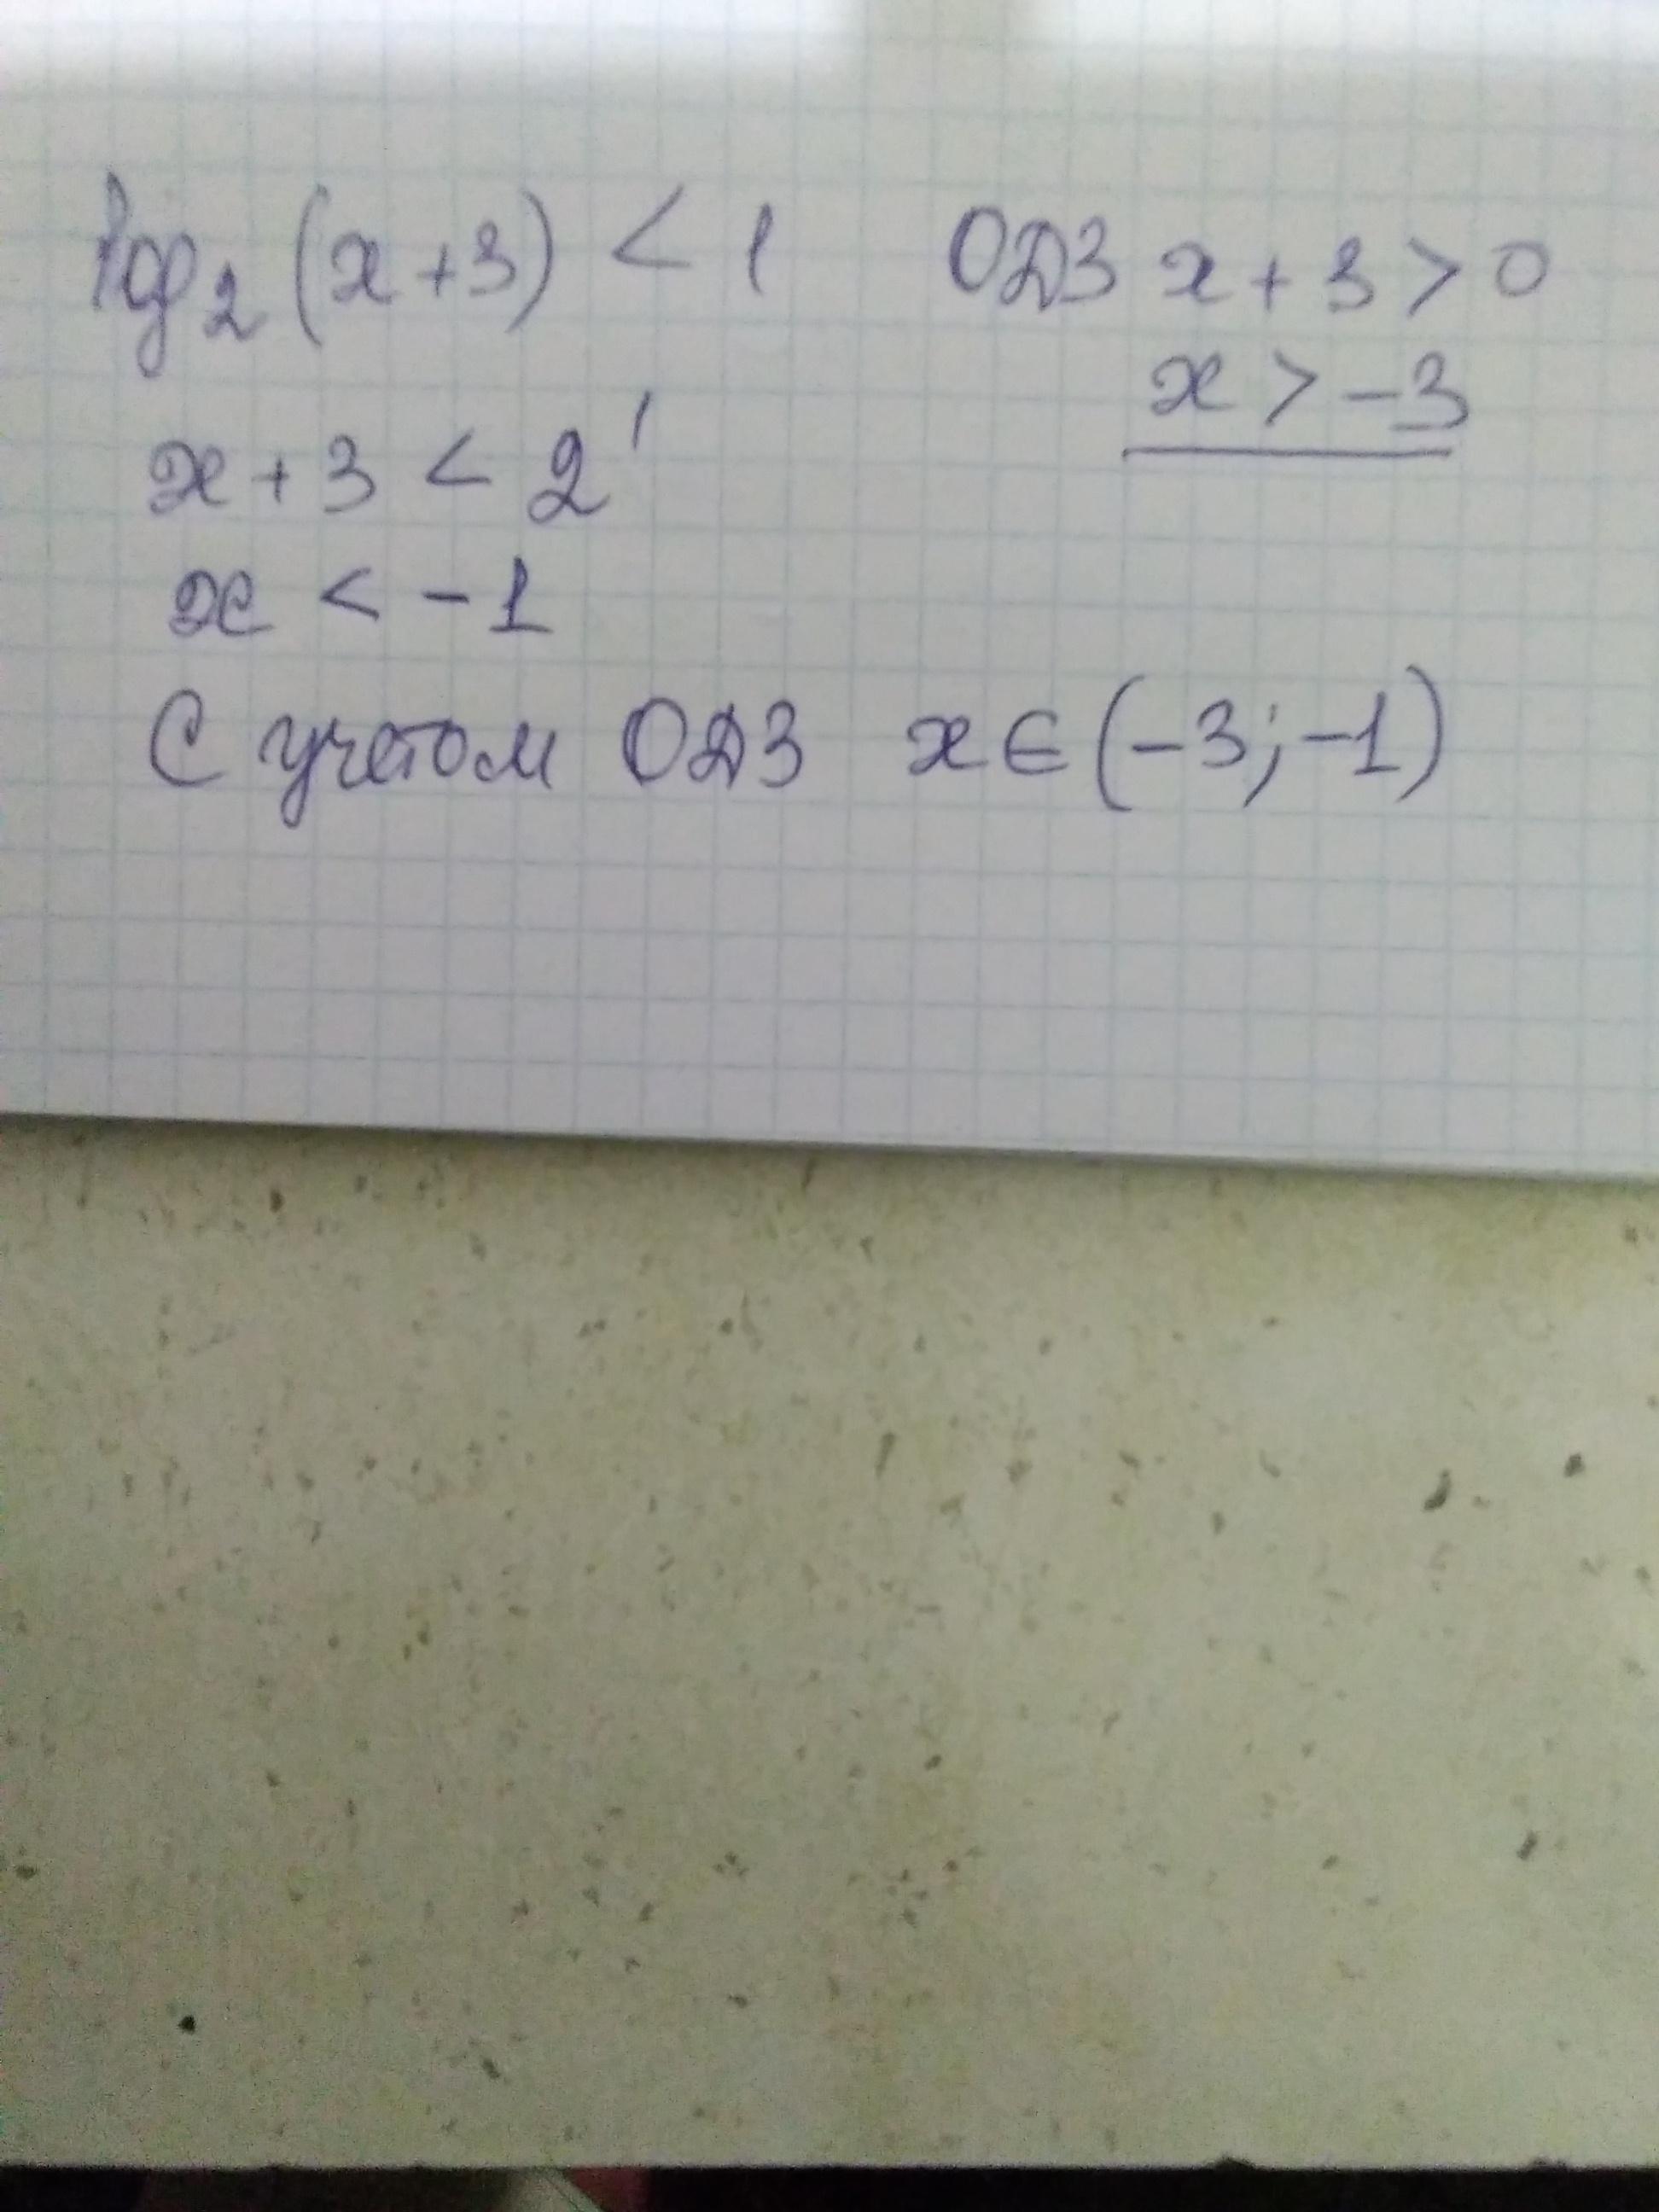 log₂(x+3) < 1 ОДЗ x+3>0
x > -3
x+3 < 2¹
x < -1
С учетом ОДЗ x∈(-3;-1)